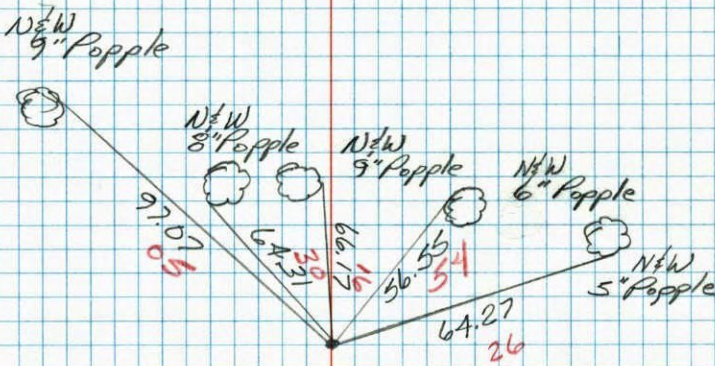 N&W
9" Popple
N&W
8" Popple
N&W
9" Popple
N&W
6" Popple
N&W
5" Popple
97.07
05
64.31
30
66.17
16
56.55
54
64.27
26